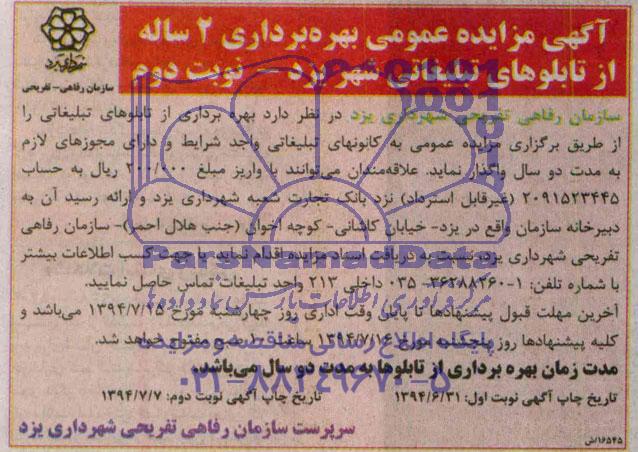 آگهی مزایده عمومی بهره‌برداری ۲ ساله
از تابلوهای تبلیغاتی شهر یزد – نوبت دوم
شهرداری یزد
سازمان رفاهی - تفریحی
سازمان رفاهی تفریحی شهرداری یزد در نظر دارد بهره برداری از تابلوهای تبلیغاتی را
از طریق برگزاری مزایده عمومی به کانونهای تبلیغاتی واجد شرایط و دارای مجوزهای لازم
به مدت دو سال واگذار نماید. علاقه‌مندان می‌توانند با واریز مبلغ ۲۰۰/۰۰۰ ریال به حساب
۲۰۹۱۵۲۳۴۴۵ (غیرقابل استرداد) نزد بانک تجارت شعبه شهرداری یزد و ارائه رسید آن به
دبیرخانه سازمان واقع در یزد- خیابان کاشانی- کوچه اخوان (جنب هلال احمر)- سازمان رفاهی
تفریحی شهرداری یزد، نسبت به دریافت اسناد مزایده اقدام نماید، یا جهت کسب اطلاعات بیشتر
با شماره تلفن: ۱-۳۶۲۸۸۲۶۰- ۰۳۵ داخلی ۲۱۳ واحد تبلیغات تماس حاصل نمایید.
آخرین مهلت قبول پیشنهادها تا پایان وقت اداری روز چهارشنبه مورخ ۱۳۹۴/۷/۱۵ می‌باشد و
کلیه پیشنهادها روز پنجشنبه مورخ ۱۳۹۴/۷/۱۶ ساعت ۱۰ صبح مفتوح خواهد شد.
مدت زمان بهره برداری از تابلوها به مدت دو سال می‌باشد.
تاریخ چاپ آگهی نوبت اول: ۱۳۹۴/۶/۳۱ تاریخ چاپ آگهی نوبت دوم: ۱۳۹۴/۷/۷
سرپرست سازمان رفاهی تفریحی شهرداری یزد
۱۶۵۴۵/ش
ParsNamadData
مرکز فرآوری اطلاعات پارس نماد داده‌ها
پایگاه اطلاع رسانی مناقصه و مزایده
۰۲۱-۸۸۳۴۹۶۷۰-۵